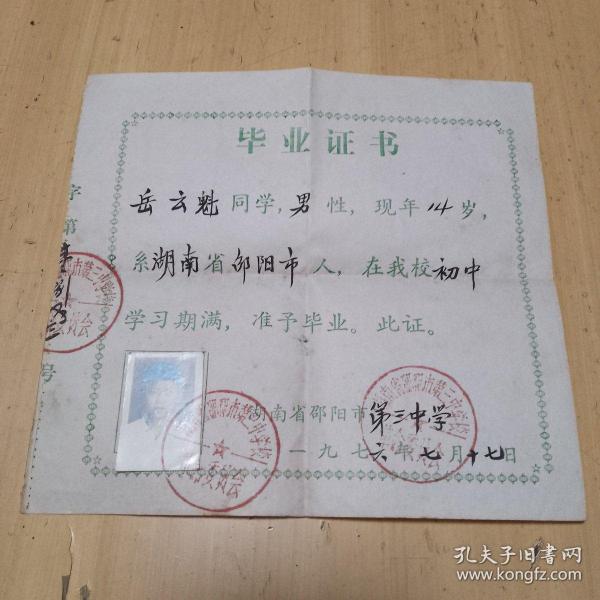 毕业证书
岳云魁同学，男性，现年14岁，
系湖南省邵阳市人，在我校初中
学习期满，准予毕业。此证。
湖南省邵阳市第三中学
一九七六年七月十七日
字第
号
孔夫子旧书网
www.kongfz.com